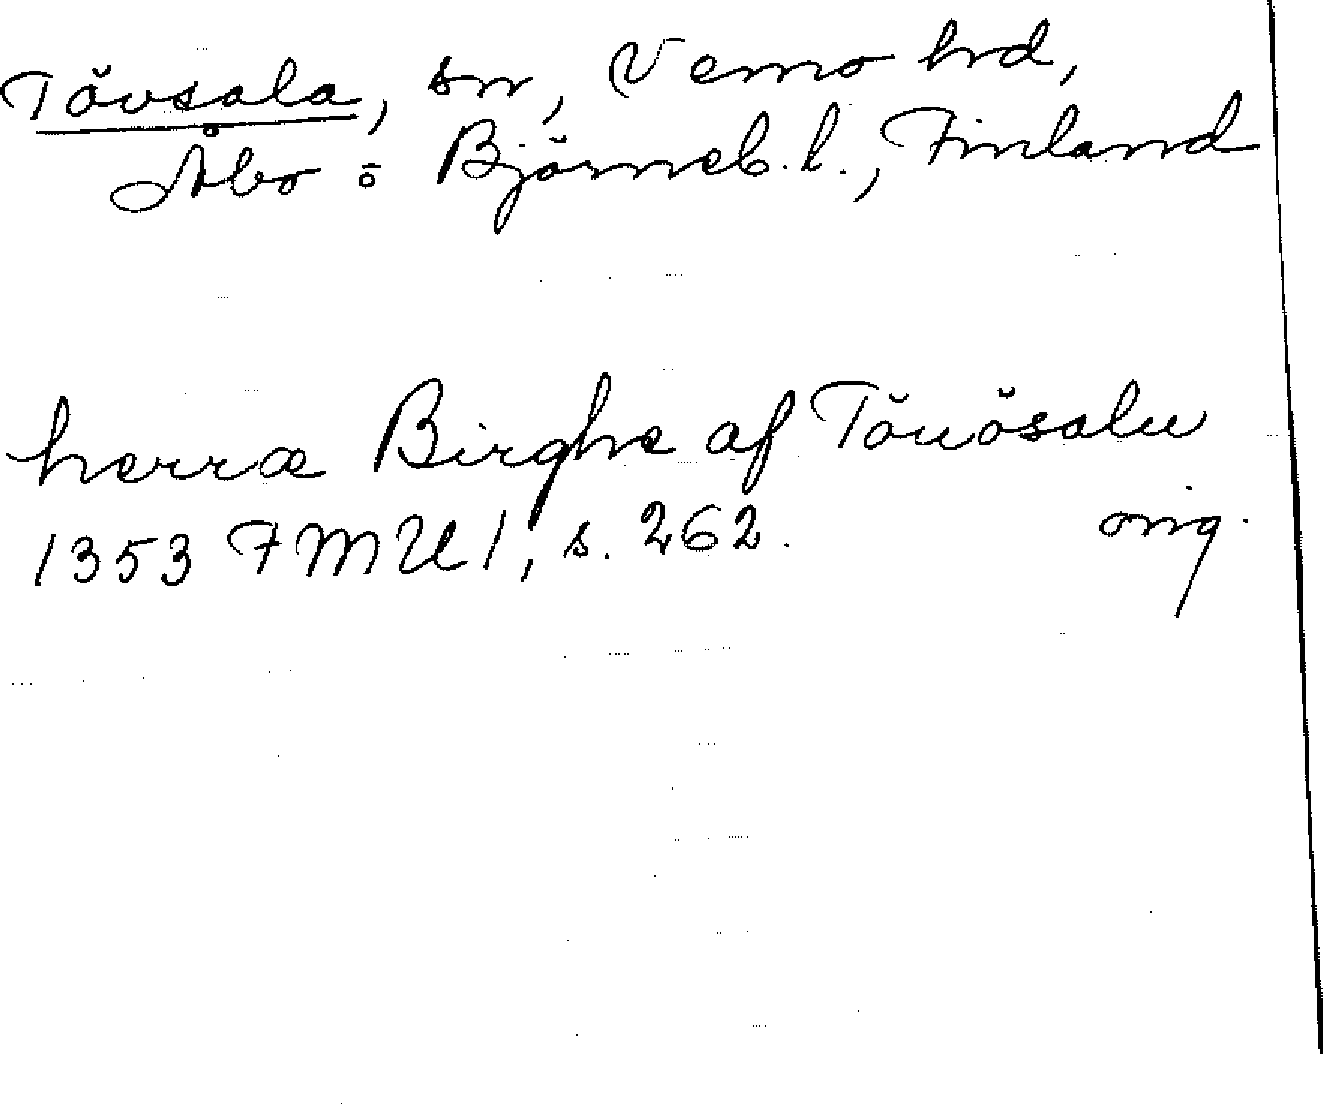 Tövsala, sn, Vemo hrd,
Åbo o Björneb. l., Finland
herræ Birghe af Töuösalu
1353 FMU 1, s. 262. orig.